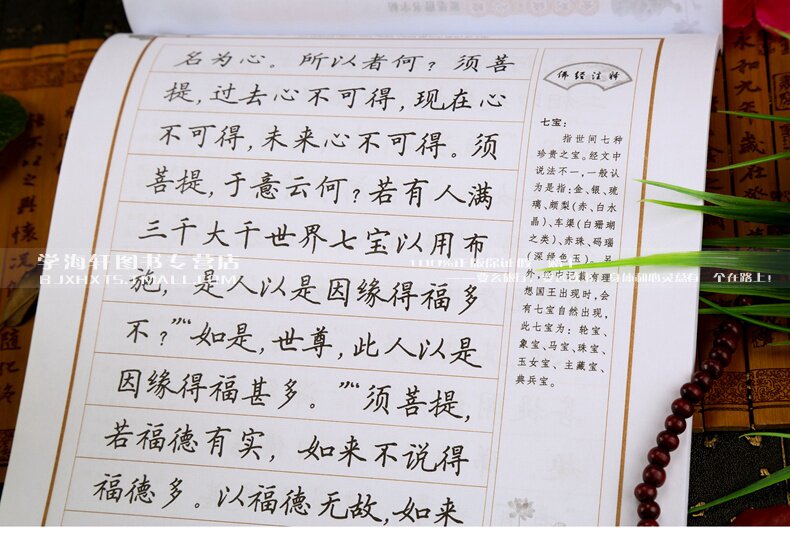 名为心。所以者何？须菩
提，过去心不可得，现在心
不可得，未来心不可得。须
菩提，于意云何？若有人满
三千大千世界七宝以用布
施，是人以是因缘得福多
不？”“如是，世尊，此人以是
因缘得福甚多。”“须菩提，
若福德有实，如来不说得
福德多。以福德无故，如来
佛经注释
七宝：
指世间七种
珍贵之宝。经文中
说法不一，一般认
为是指：金、银、琉
璃、颇梨（赤、白水
晶）、车渠（白珊瑚
之类）、赤珠、码瑙
（深绿色玉）。另
外，经中记载有理
想国王出现时，会
有七宝自然出现，
此七宝为：轮宝、
象宝、马宝、珠宝、
玉女宝、主藏宝、
典兵宝。
学海轩图书专营店
BJXHXTS.TMALL.COM